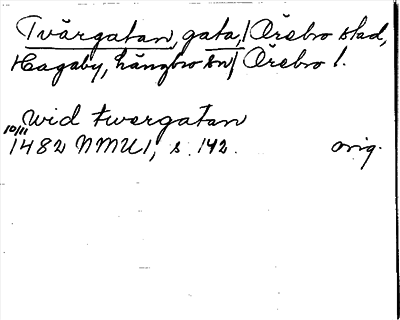 Tvärgatan, gata, / Örebro stad,
Hagaby, Längbro sn / Örebro l.
wid twergatan
10/11 1482 NMU1, s. 142. orig.